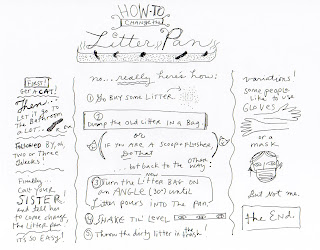 HOW-TO
CHANGE the
Litter Pan
First!
Get A CAT!
Then...
LET it go TO
The Bathroom
A LOT.
Followed By, oh,
Two or Three
Weeks.
Finally...
CALL YOUR
SISTER!
and tell her
to come change
the litter pan.
IT'S SO EASY!
no... really here's how:
① Go BUY Some LITTER.
② Dump the Old Litter in a Bag.
or
IF you ARE A SCOOPER/FLUSHER,
Do THAT
... but back to the OTHER WAY.
③ Turn the NEW Litter BAG ON
an ANGLE (30°) until
Litter pours into The pan.
④ SHAKE TIL' LEVEL
⑤ Throw the dirty litter in the trash!
variations!
Some people
Like to use
GLOVES
or a
mask.
But not me.
the End.